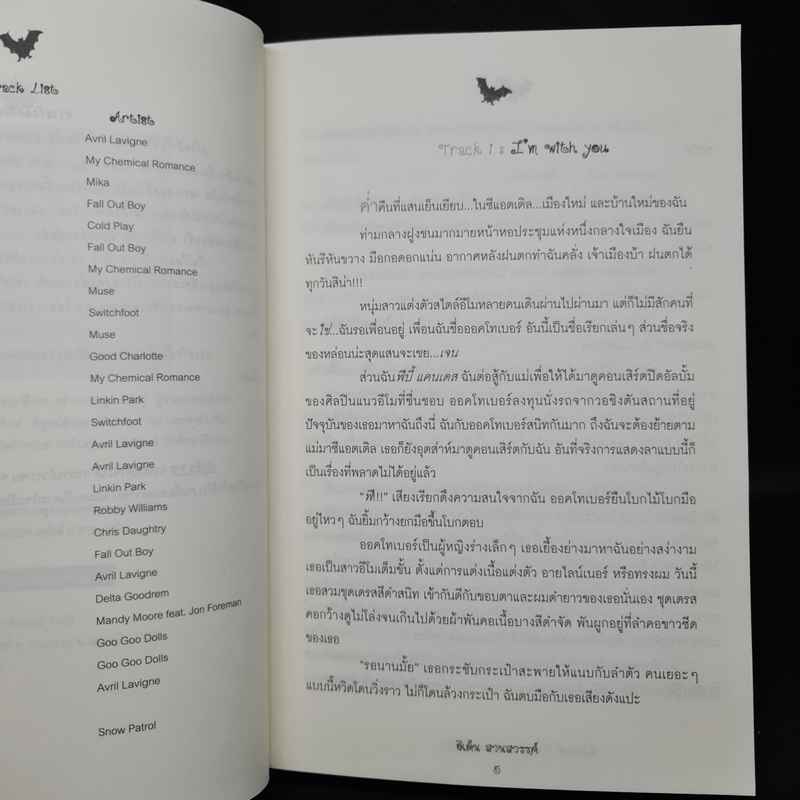 rack List
Artist
Avril Lavigne
My Chemical Romance
Mika
Fall Out Boy
Cold Play
Fall Out Boy
My Chemical Romance
Muse
Switchfoot
Muse
Good Charlotte
My Chemical Romance
Linkin Park
Switchfoot
Avril Lavigne
Avril Lavigne
Linkin Park
Robby Williams
Chris Daughtry
Fall Out Boy
Avril Lavigne
Delta Goodrem
Mandy Moore feat. Jon Foreman
Goo Goo Dolls
Goo Goo Dolls
Avril Lavigne
Snow Patrol
Track 1 : I'm with you
ค่ำคืนที่แสนเย็นเยียบ...ในซีแอตเติล...เมืองใหม่ และบ้านใหม่ของฉัน
ท่ามกลางฝูงชนมากมายหน้าหอประชุมแห่งหนึ่งกลางใจเมือง ฉันยืน
หันรีหันขวาง มือกอดอกแน่น อากาศหลังฝนตกทำฉันคลั่ง เจ้าเมืองบ้า ฝนตกได้
ทุกวันสิน่า!!!
หนุ่มสาวแต่งตัวสไตล์อีโมหลายคนเดินผ่านไปผ่านมา แต่ก็ไม่มีสักคนที่
จะใช่...ฉันรอเพื่อนอยู่ เพื่อนฉันชื่อออคโทเบอร์ อันนี้เป็นชื่อเรียกเล่นๆ ส่วนชื่อจริง
ของหล่อนน่ะสุดแสนจะเชย...เจน
ส่วนฉันฟีบี้ แคนเดส ฉันต่อสู้กับแม่เพื่อให้ได้มาดูคอนเสิร์ตปิดอัลบั้ม
ของศิลปินแนวอีโมที่ชื่นชอบ ออคโทเบอร์ลงทุนนั่งรถจากวอชิงตันสถานที่อยู่
ปัจจุบันของเธอมาหาฉันถึงนี่ ฉันกับออคโทเบอร์สนิทกันมาก ถึงฉันจะต้องย้ายตาม
แม่มาซีแอตเติล เธอก็ยังอุตส่าห์มาดูคอนเสิร์ตกับฉัน อันที่จริงการแสดงลาแบบนี้ก็
เป็นเรื่องที่พลาดไม่ได้อยู่แล้ว
"ฟี!!" เสียงเรียกดึงความสนใจจากฉัน ออคโทเบอร์ยืนโบกไม้โบกมือ
อยู่ไหวๆ ฉันยิ้มกว้างยกมือขึ้นโบกตอบ
ออคโทเบอร์เป็นผู้หญิงร่างเล็กๆ เธอเยื้องย่างมาหาฉันอย่างสง่างาม
เธอเป็นสาวอีโมเต็มขั้น ตั้งแต่การแต่งเนื้อแต่งตัว อายไลน์เนอร์ หรือทรงผม วันนี้
เธอสวมชุดเดรสสีดำสนิท เข้ากันดีกับขอบตาและผมดำยาวของเธอนั่นเอง ชุดเดรส
คอกว้างดูไม่โล่งจนเกินไปด้วยผ้าพันคอเนื้อบางสีดำจัด พันผูกอยู่ที่ลำคอขาวซีด
ของเธอ
"รอนานมั้ย" เธอกระชับกระเป๋าสะพายให้แนบกับลำตัว คนเยอะๆ
แบบนี้หวิดโดนวิ่งราว ไม่ก็โดนล้วงกระเป๋า ฉันตบมือกับเธอเสียงดังแปะ
อีเด็น สวนสวรรค์
5